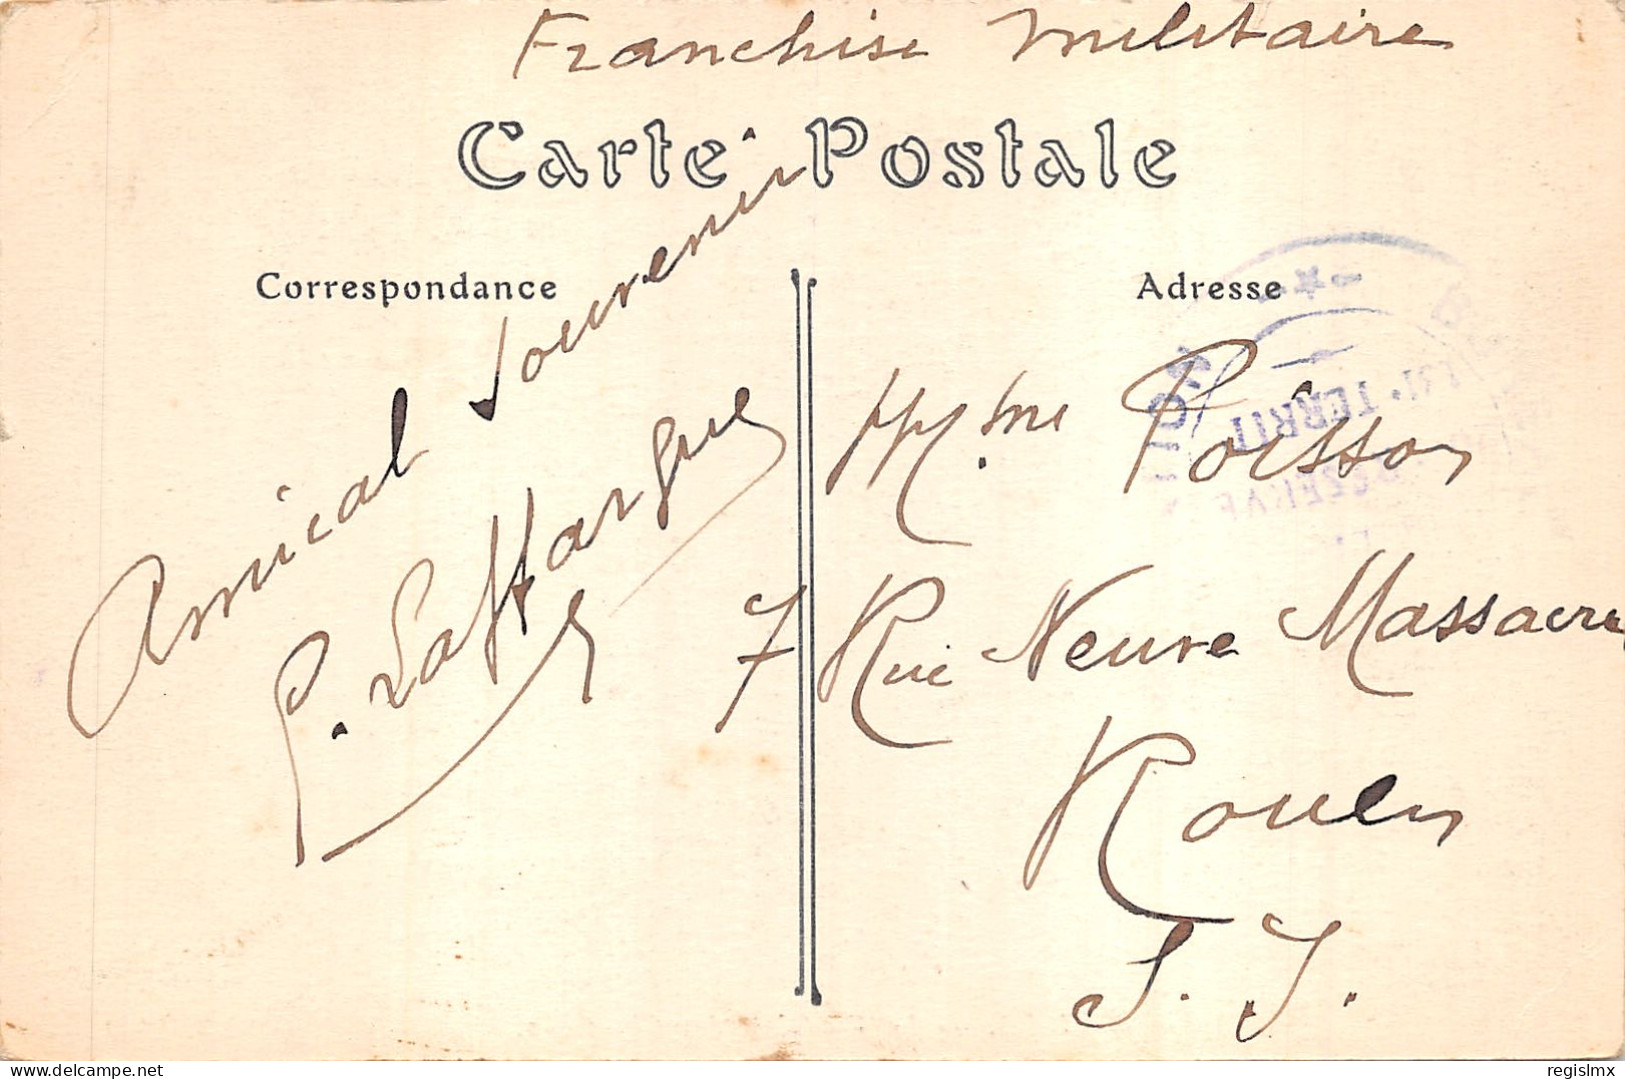 Franchise Militaire
Carte Postale
Correspondance
Adresse
Amical Souvenir
P. LaHargue
TERRIT
M.me Poisson
7 Rue Neuve Massacre
Rouen
S. I.
delcampe.net
regislmx